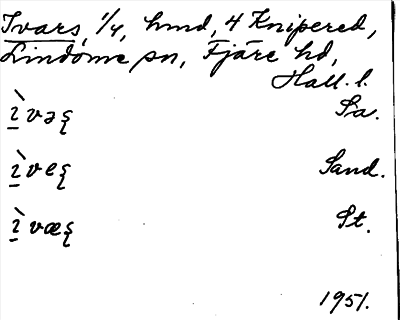 Ivars, 1/4, hmd, 4 Knipered,
Lindome sn, Fjäre hd,
Hall. l.
ı̀vəʂ Sa.
ı̀veʂ Sand.
ı̀væʂ St.
1951.